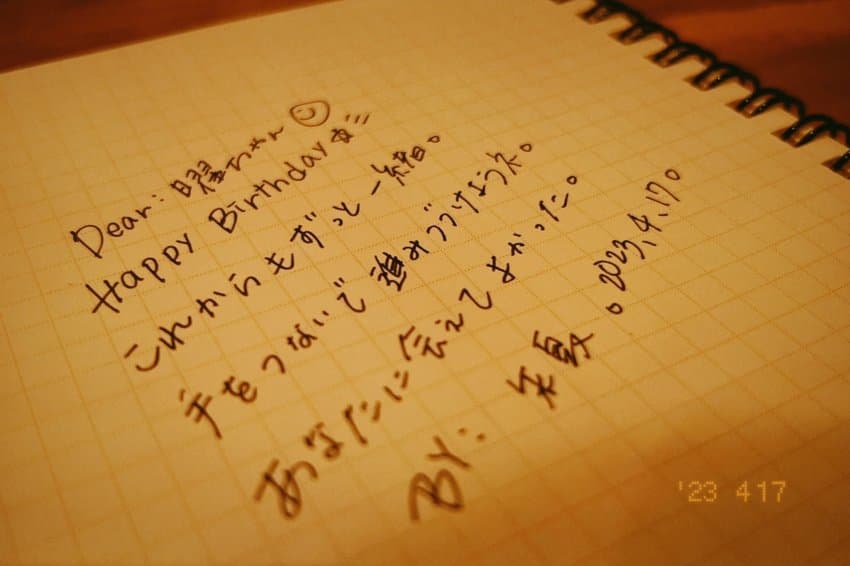 Dear: 曜ちゃん
Happy Birthday
これからもずっと一緒。
手をつないで進みつづけようネ。
あなたに会えてよかった。
BY: 矢夏。2023.4.17。
'23 4 17